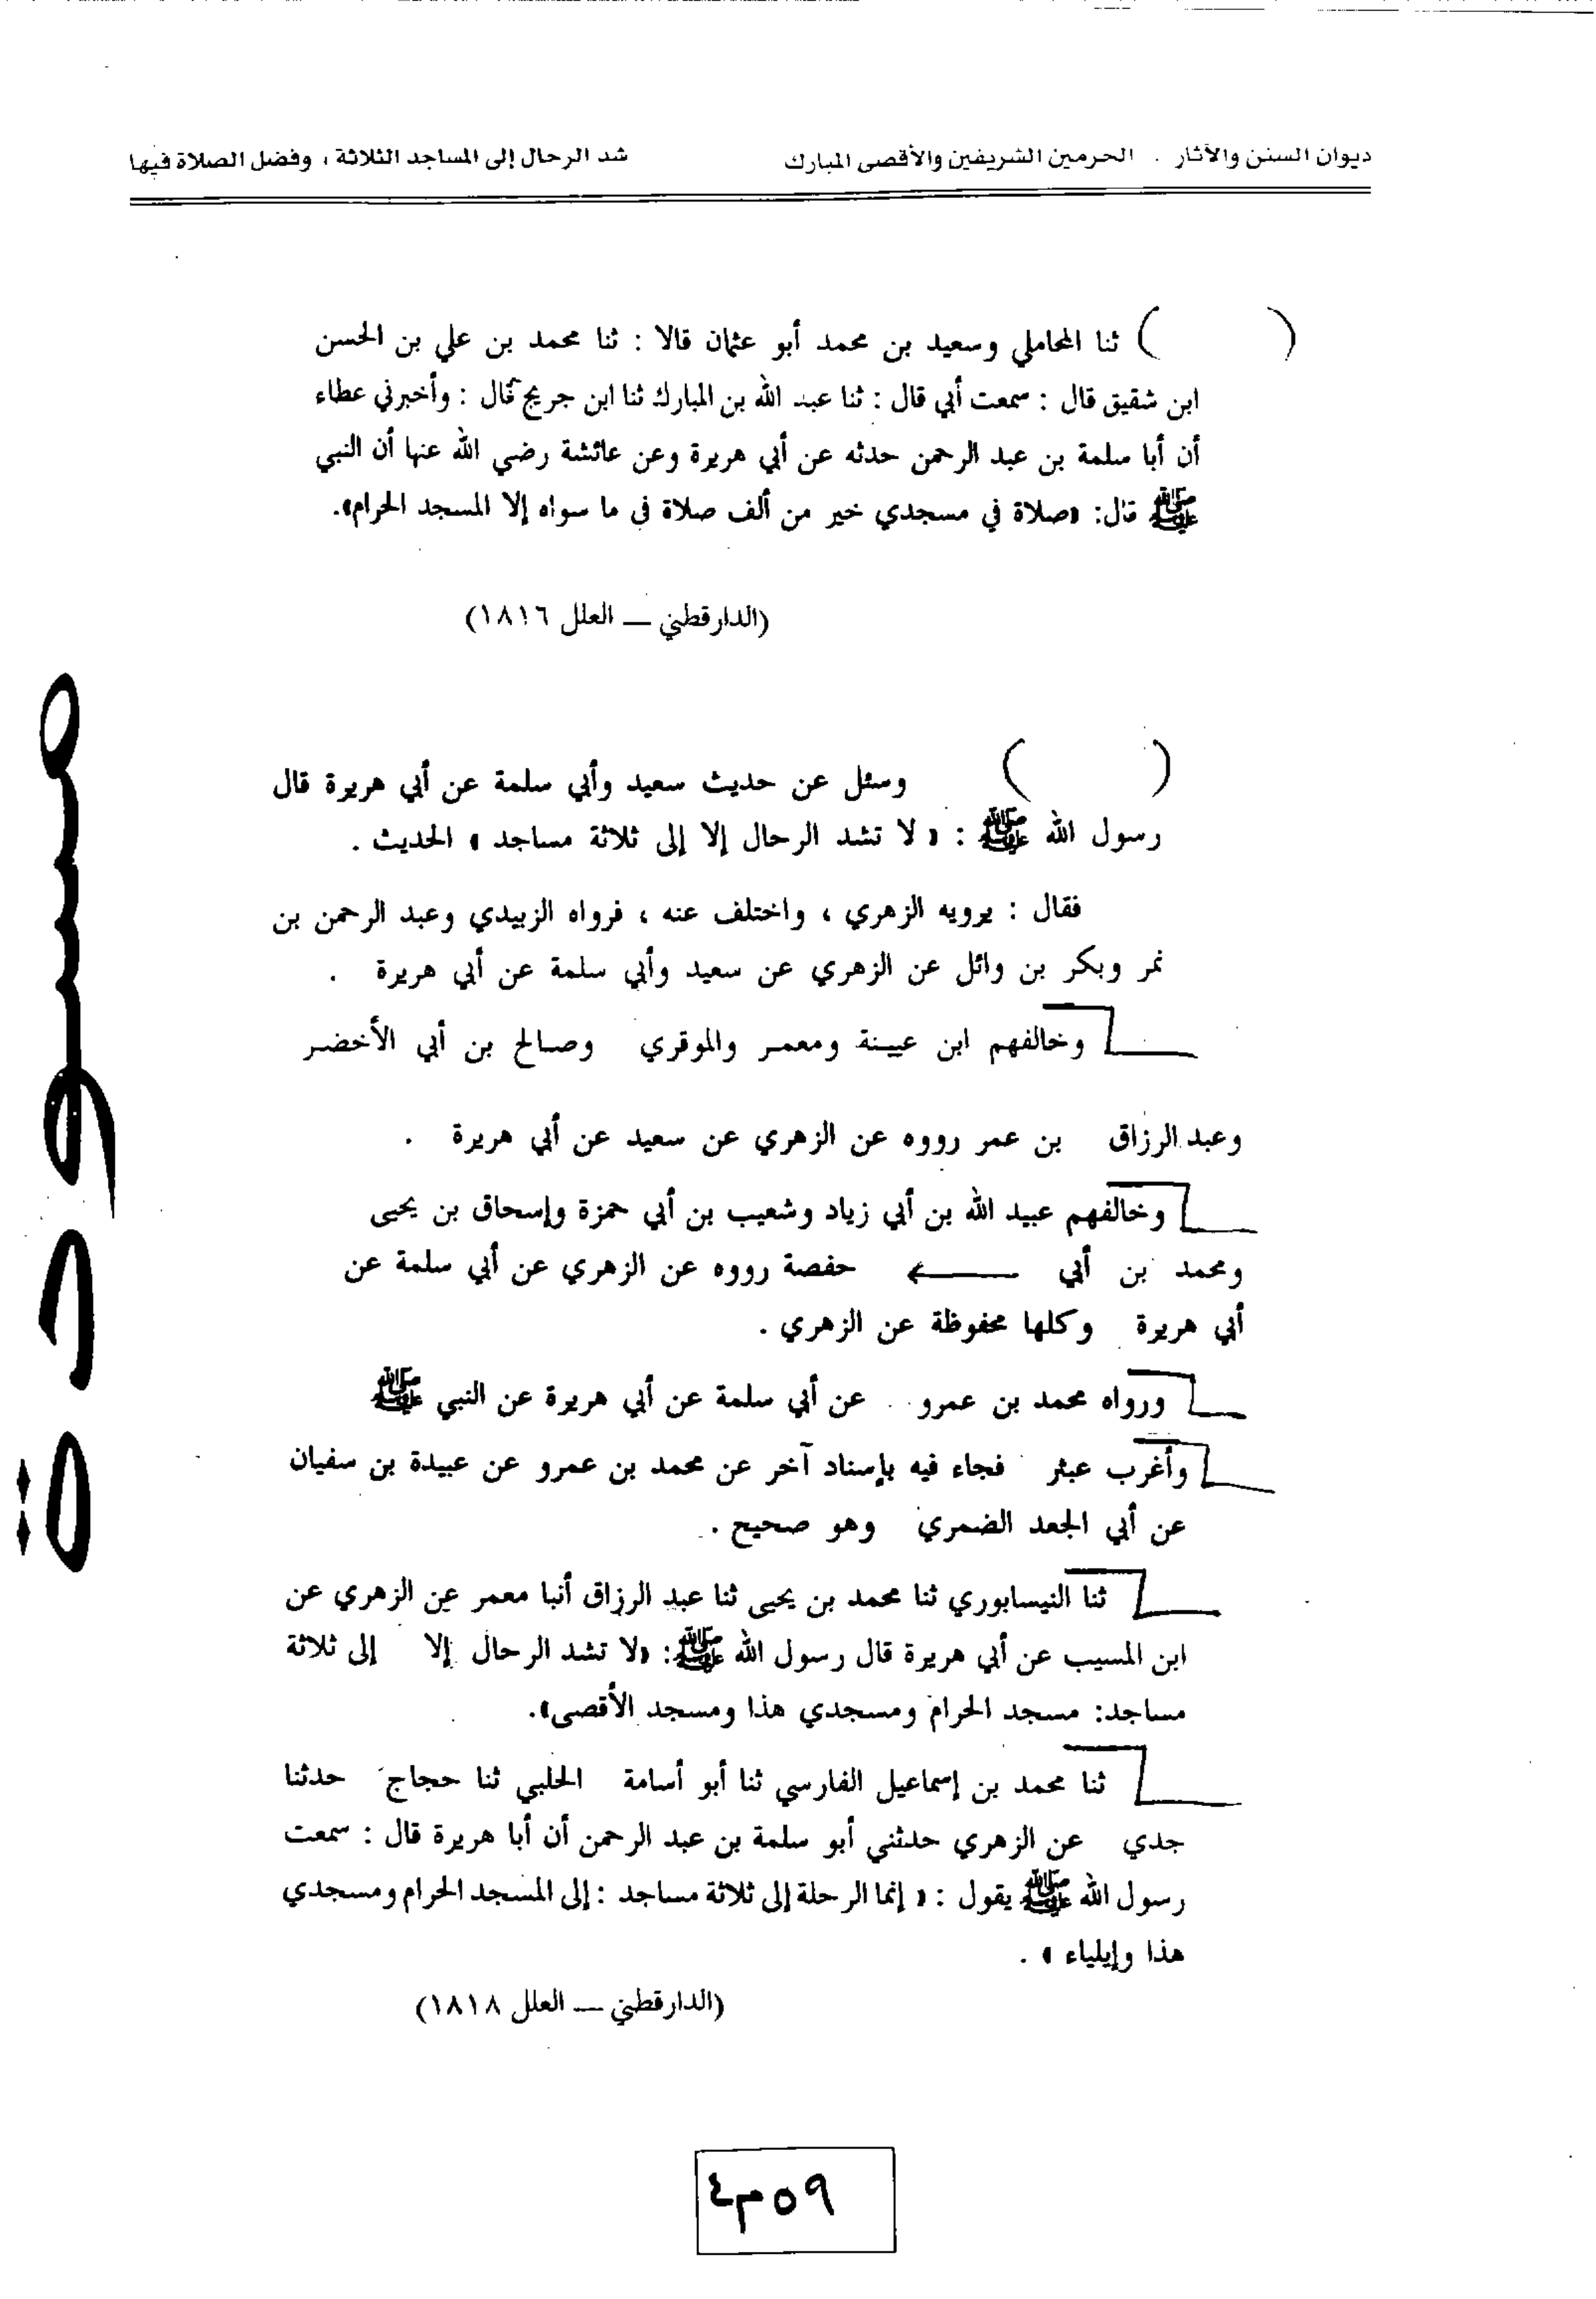 ديوان السنن والآثار . الحرمين الشريفين والأقصى المبارك
شد الرحال إلى المساجد الثلاثة ، وفضل الصلاة فيها
( ) ثنا المحاملي وسعيد بن محمد أبو عثمان قالا : ثنا محمد بن علي بن الحسن
ابن شقيق قال : سمعت أبي قال : ثنا عبد الله بن المبارك ثنا ابن جريج قال : وأخبرني عطاء
أن أبا سلمة بن عبد الرحمن حدثه عن أبي هريرة وعن عائشة رضي الله عنها أن النبي
ﷺ قال: «صلاة في مسجدي خير من ألف صلاة في ما سواه إلا المسجد الحرام».
(الدارقطني – العلل ١٨١٦)
( ) وسئل عن حديث سعيد وأبي سلمة عن أبي هريرة قال
رسول الله ﷺ : « لا تشد الرحال إلا إلى ثلاثة مساجد » الحديث .
فقال : يرويه الزهري ، واختلف عنه ، فرواه الزبيدي وعبد الرحمن بن
نمر وبكر بن وائل عن الزهري عن سعيد وأبي سلمة عن أبي هريرة .
وخالفهم ابن عيينة ومعمر والموقري وصالح بن أبي الأخضر
وعبد الرزاق بن عمر رووه عن الزهري عن سعيد عن أبي هريرة .
وخالفهم عبيد الله بن أبي زياد وشعيب بن أبي حمزة وإسحاق بن يحيى
ومحمد بن أبي ← حفصة رووه عن الزهري عن أبي سلمة عن
أبي هريرة وكلها محفوظة عن الزهري .
ورواه محمد بن عمرو عن أبي سلمة عن أبي هريرة عن النبي ﷺ
وأغرب عبثر فجاء فيه بإسناد آخر عن محمد بن عمرو عن عبيدة بن سفيان
عن أبي الجعد الضمري وهو صحيح .
ثنا النيسابوري ثنا محمد بن يحيى ثنا عبد الرزاق أنبا معمر عن الزهري عن
ابن المسيب عن أبي هريرة قال رسول الله ﷺ: «لا تشد الرحال إلا إلى ثلاثة
مساجد: مسجد الحرام ومسجدي هذا ومسجد الأقصى».
ثنا محمد بن إسماعيل الفارسي ثنا أبو أسامة الحلبي ثنا حجاج حدثنا
جدي عن الزهري حدثني أبو سلمة بن عبد الرحمن أن أبا هريرة قال : سمعت
رسول الله ﷺ يقول : « إنما الرحلة إلى ثلاثة مساجد : إلى المسجد الحرام ومسجدي
هذا وإيلياء » .
(الدارقطني – العلل ١٨١٨)
مسودة
٤م٥٩